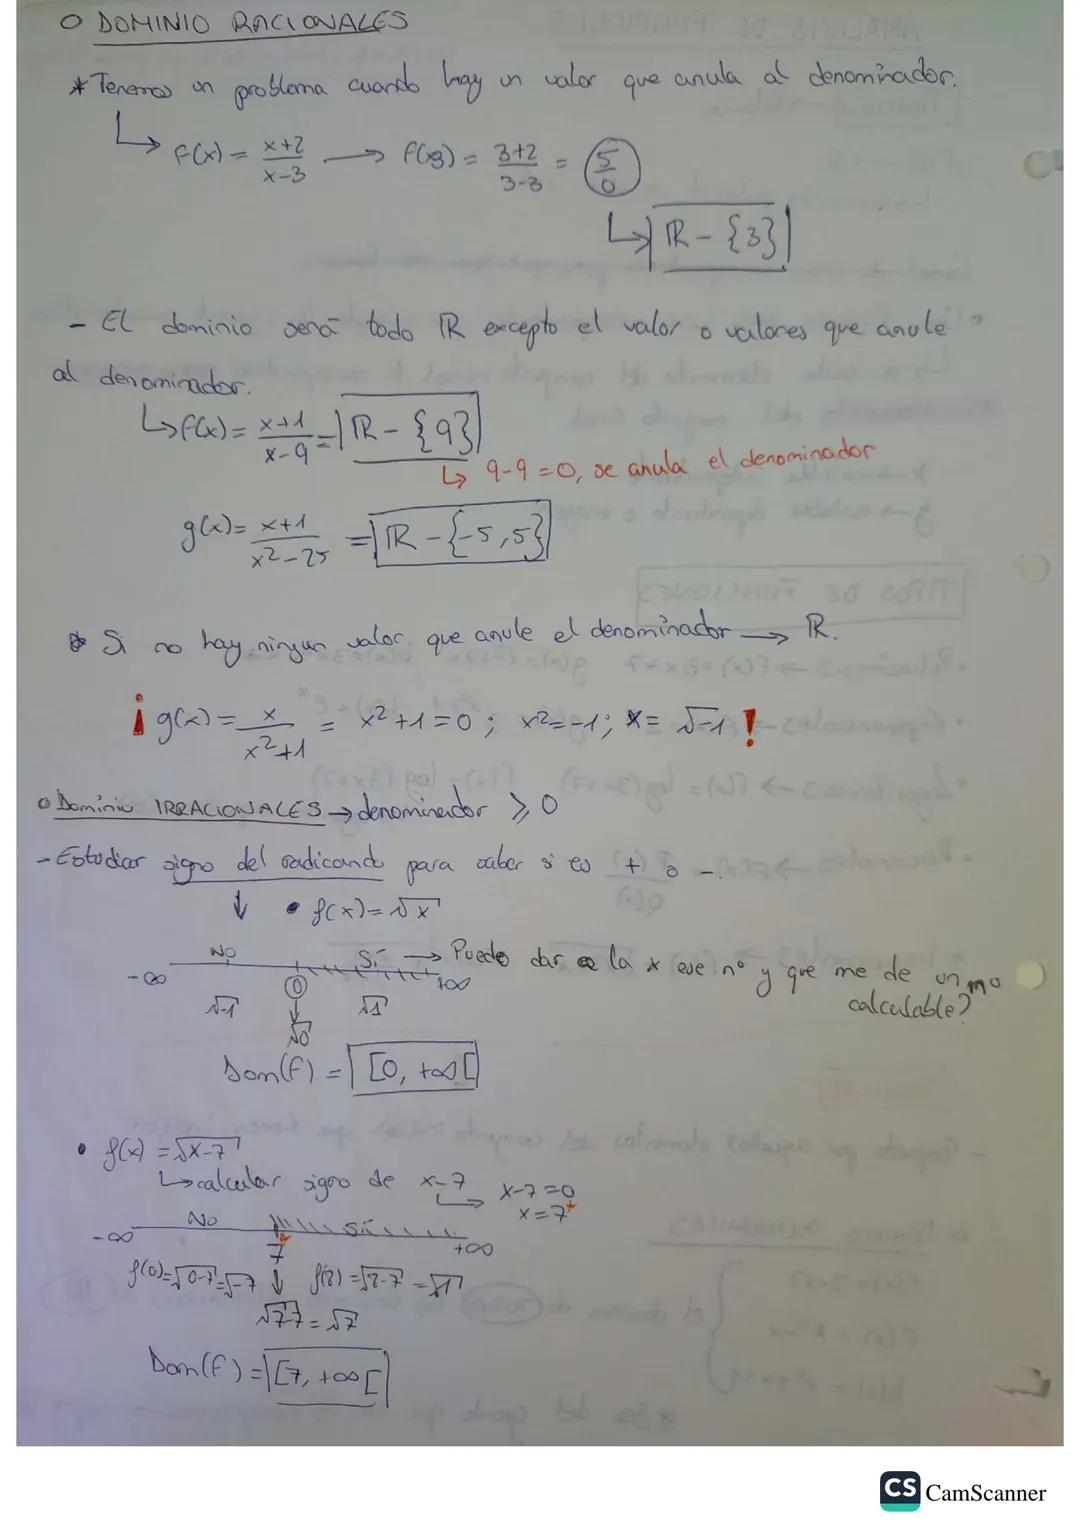 O DOMINIO RACIONALES
* Tenemos un problema cuando hay un valor que anula al denominador.
↳ f(x) = x+2/x-3 → f(3) = 3+2/3-3 = 5/0
↳ ℝ - {3}
- El dominio será todo ℝ excepto el valor o valores que anule
al denominador.
↳ f(x) = x+1/x-9 = ℝ - {9}
↳ 9-9=0, se anula el denominador
g(x) = x+1/x²-25 = ℝ - {-5,5}
* Si no hay ningun valor que anule el denominador → ℝ.
¡ g(x) = x/x²+1 = x²+1=0; x²=-1; x= √-1 !
o Dominio IRRACIONALES → denominador ⩾ 0
- Estudiar signo del radicando para saber si es + o -.
↓ • f(x)=√x
-∞ NO 0 Sí +∞ → Puedo dar a la x ese nº y que me de un no
calculable?
√-1 ↓ √1
√0
Dom(f) = [0, +∞[
• f(x) = √x-7
↳ calcular signo de x-7 → x-7=0
x=7
-∞ NO 7 Sí +∞
f(0)=√0-7=√-7 ↓ f(8)=√8-7=√1
√7-7 = √7
Dom(f) = [7, +∞[
CS CamScanner